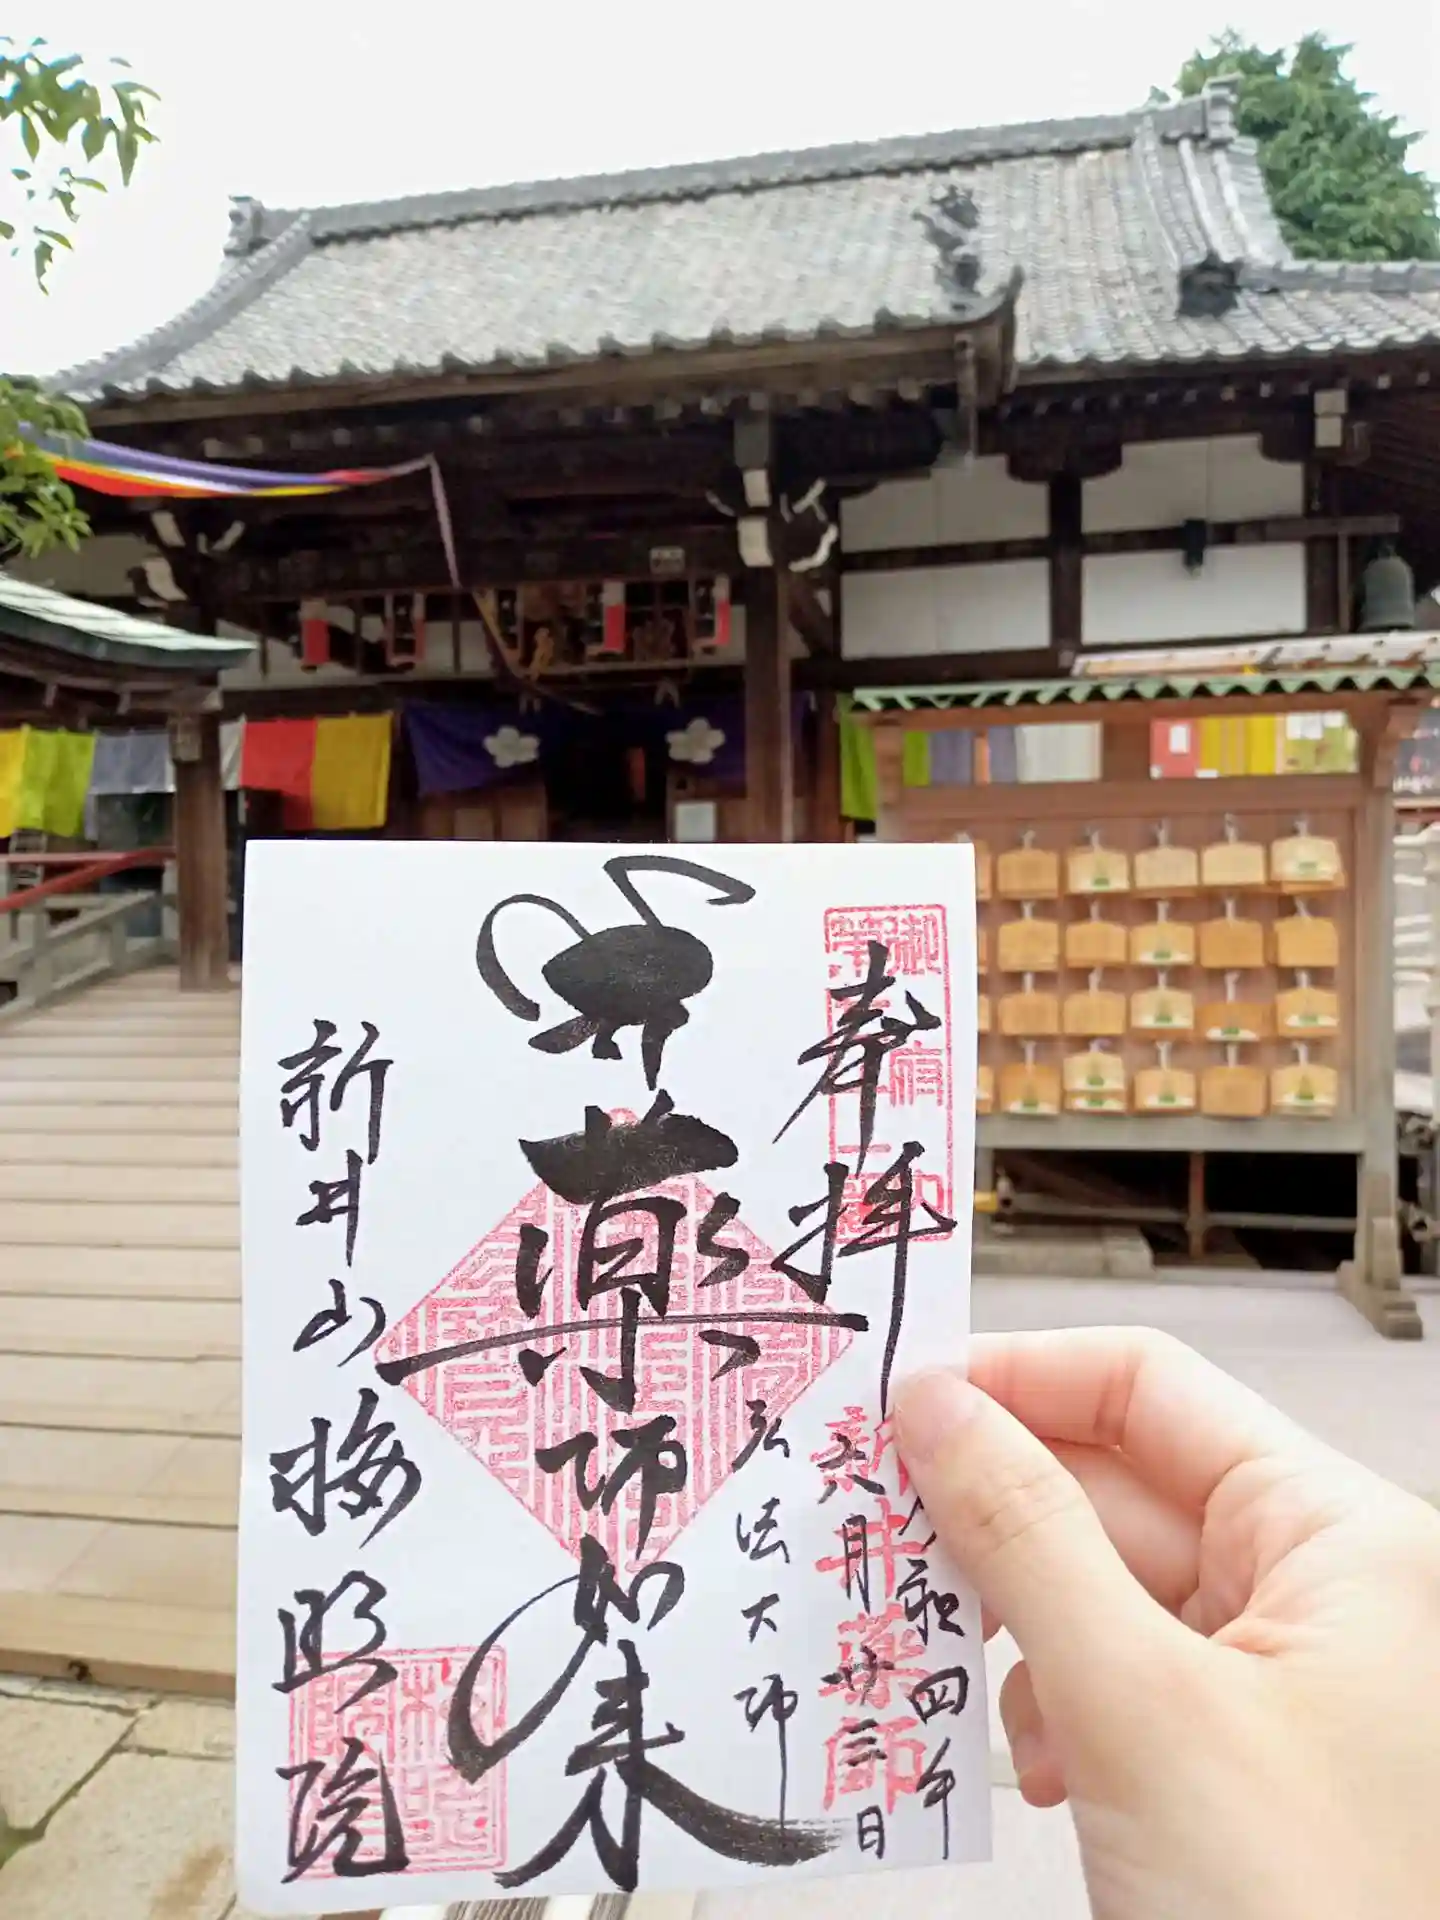 奉拝
令和四年
八月廿三日
新井薬師
弘法大師
薬師如来
新井山梅照院
梅照院